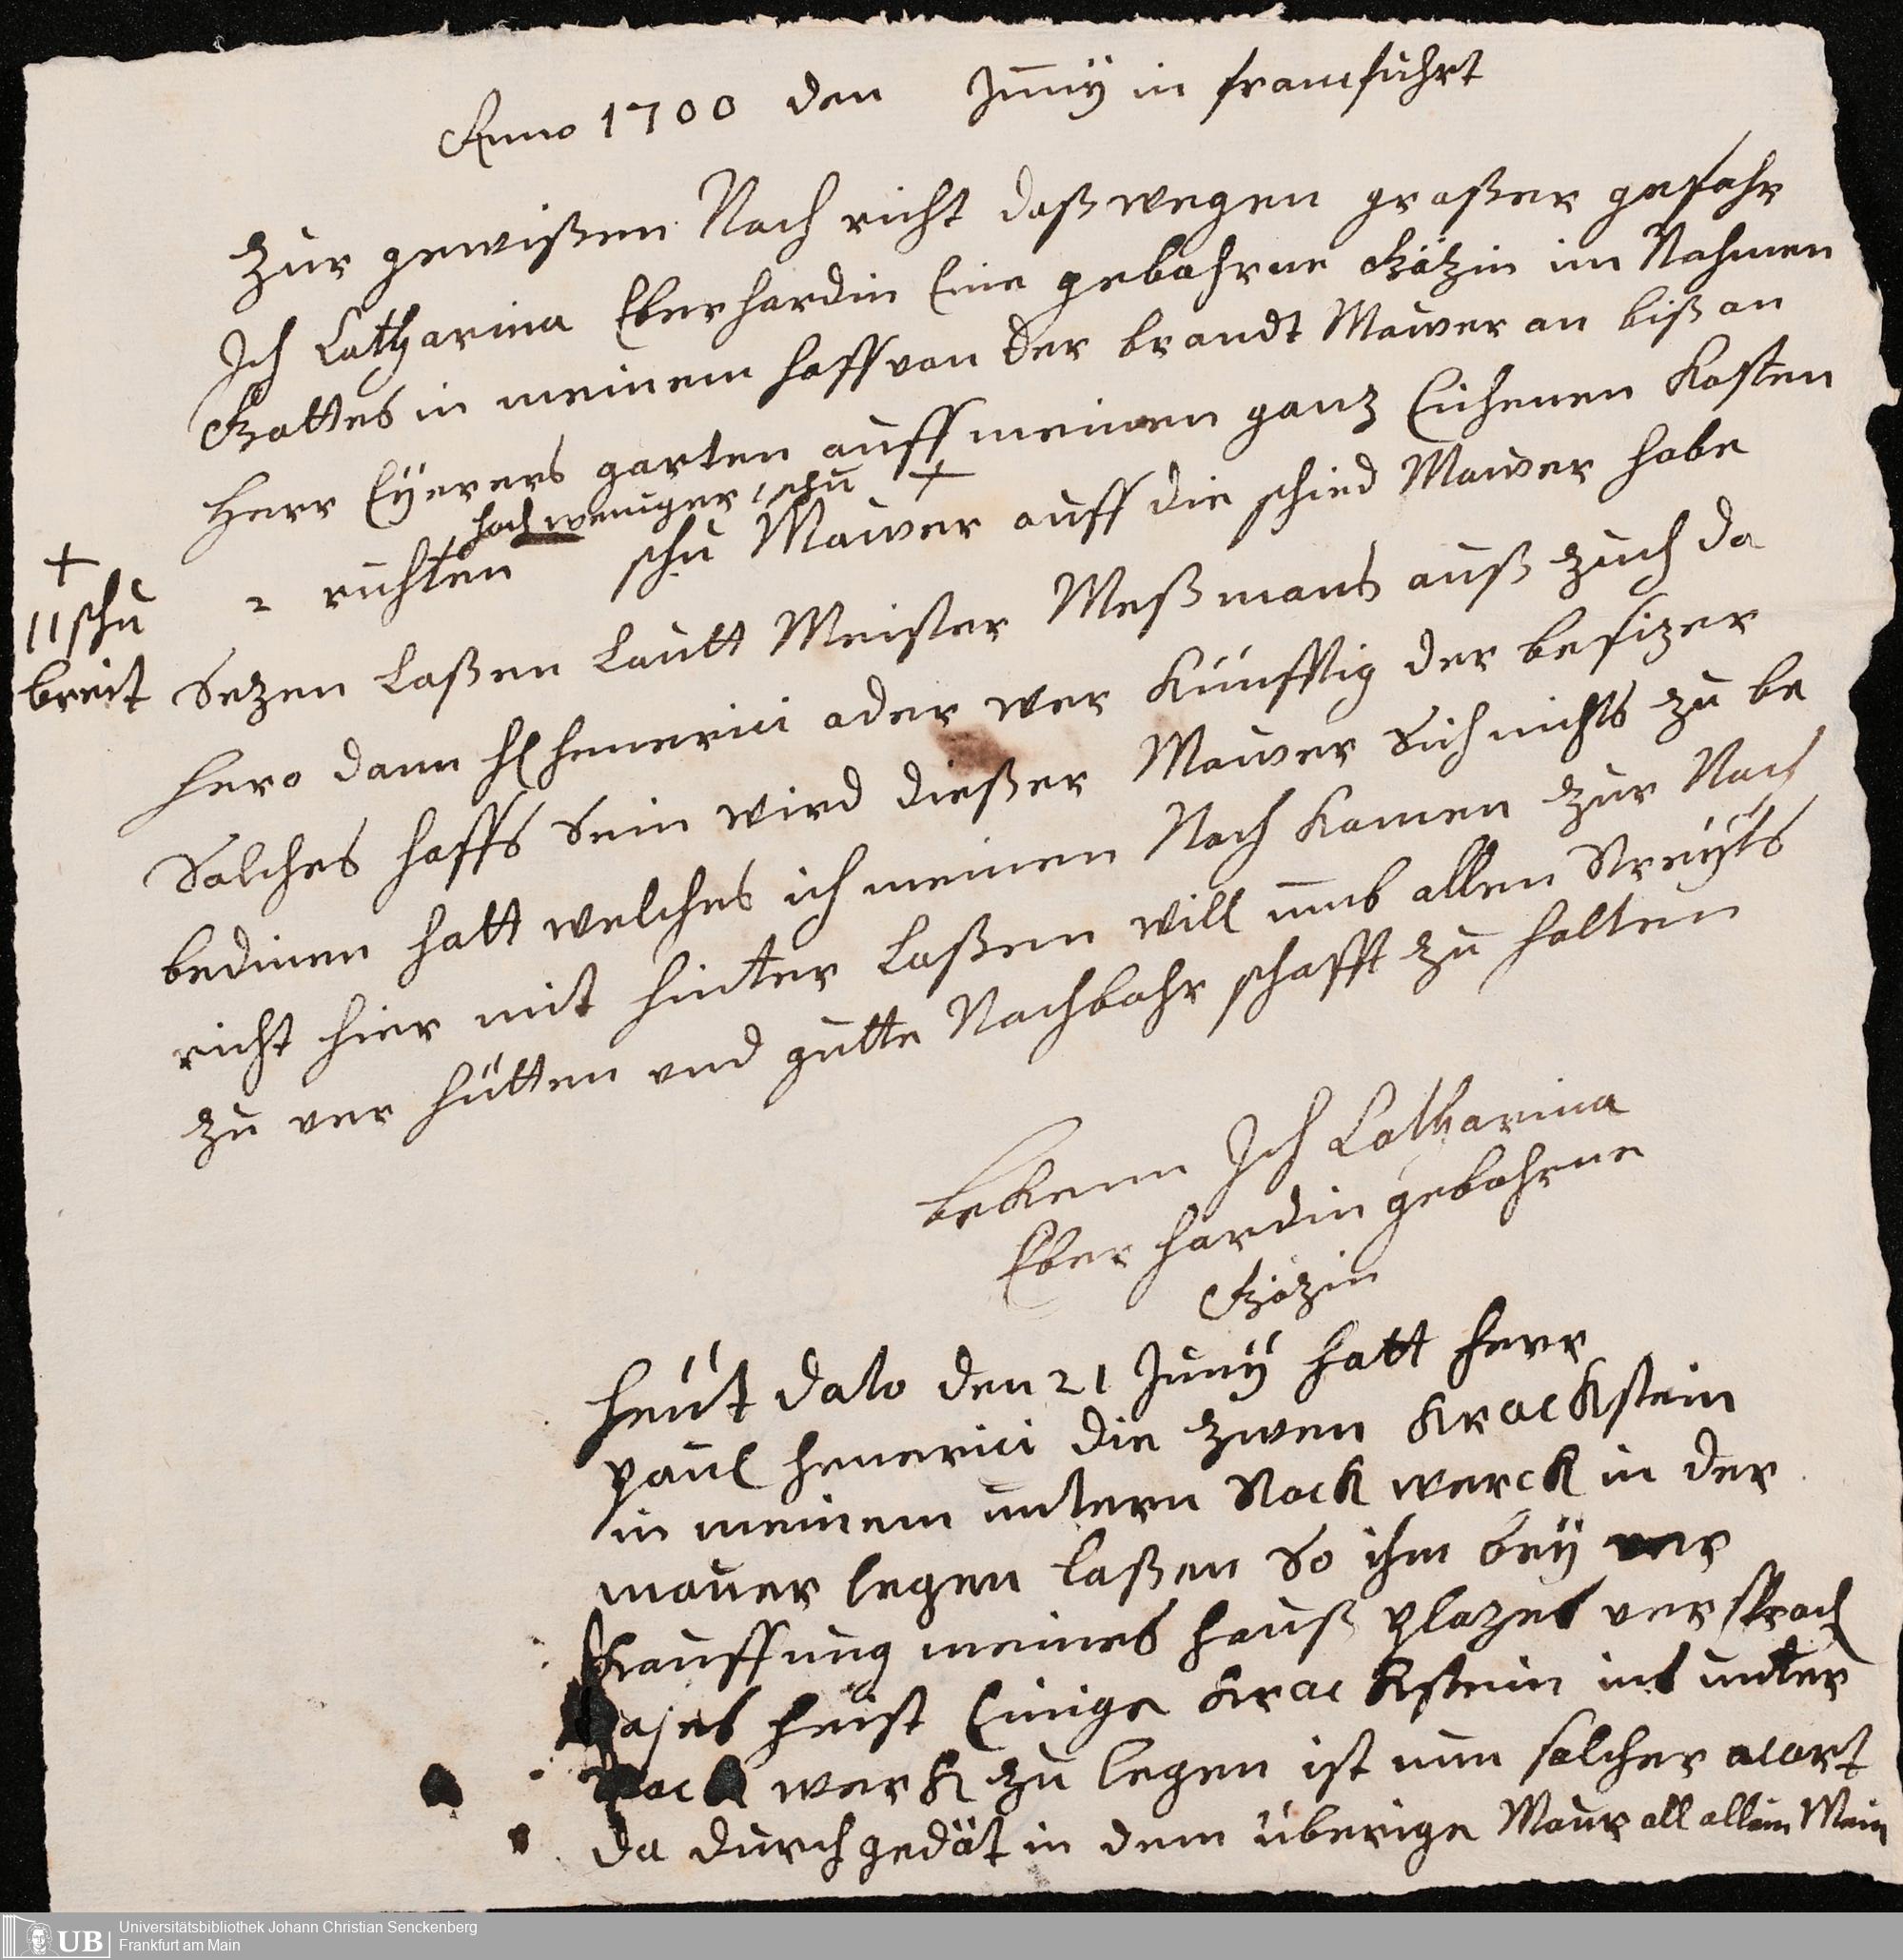 Anno 1700 den Juny in francfuhrt
Zur gewißen Nach richt daß wegen großer gefahr
Ich Catharina Eberhardin Eine gebohrne Götzin im Nahmen
Gottes in meinem hoff von der brandt Mauer an biß an
Herr Eÿerers garten auff meinen ganz Eichenen Kosten
hoch weniger 1 schu +
+
11 schu
breit
2 ruhten schu Mauer auff die schied Mauer habe
Sezen laßen lautt Meister Meßmans auß zuch da
hero dann H henerici oder wer Künfftig der besizer
Solches hoffs Sein wird dießer Mauer Sich nichts zu be
bedinen hatt welches ich meinen Nach Komen zur Nach
richt hier mit hinter laßen will umb allen Streÿts
zu ver hütten und gutte Nachbahr schafft zu halten
beKenn Ich Catharina
Eber hardin gebohrne
Götzin
heut dato den 21 Junÿ hatt herr
paul henerici die zwen KracKstein
in meinem untern StocK wercK in der
mauer legen laßen So ihm beÿ ver
Kauffung meines hauß plazes versprach
heist Einige Krac Kstein ins unter
StocK werK zu legen ist nun solcher acort
da durch gedät in dem überige Maur all allein Mein
Universitätsbibliothek Johann Christian Senckenberg
UB
Frankfurt am Main